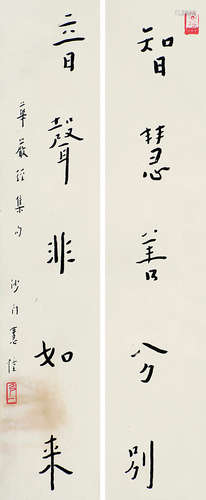 智慧善分別
音聲非如来
華嚴經集句
沙門慧㧑